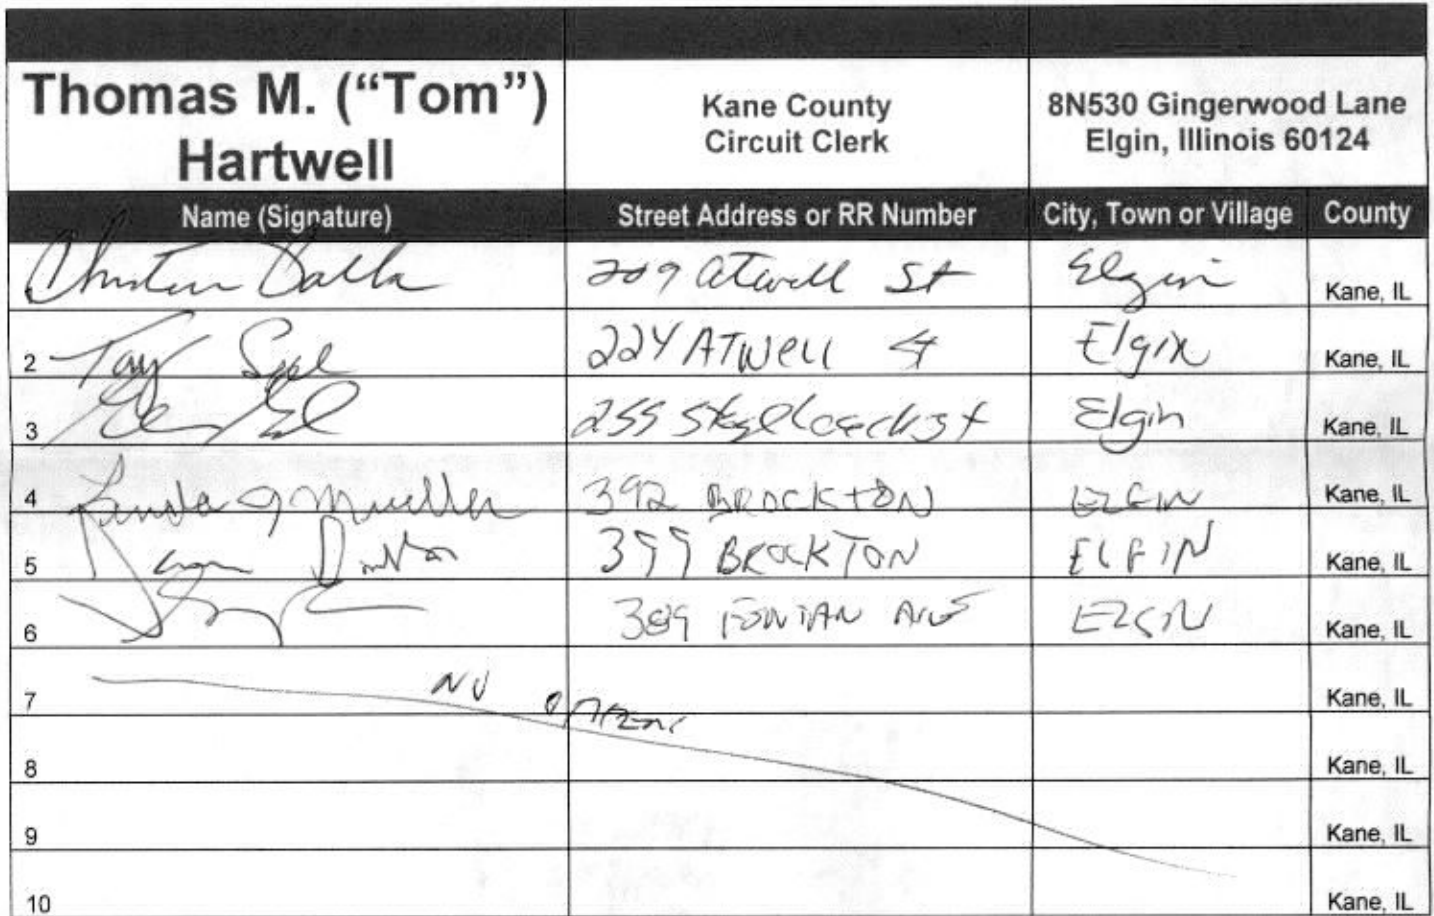 Thomas M. (“Tom”) Hartwell
Kane County Circuit Clerk
8N530 Gingerwood Lane Elgin, Illinois 60124
Name (Signature) Street Address or RR Number City, Town or Village County
209 Atwell St Elgin Kane, IL
2 224 ATWell St Elgin Kane, IL
3 255 St Elgin Kane, IL
4 Linda J Mueller 392 BROCKTON ELGIN Kane, IL
5 399 BROCKTON ELGIN Kane, IL
6 389 AVE ELGIN Kane, IL
7 NO Kane, IL
8 Kane, IL
9 Kane, IL
10 Kane, IL